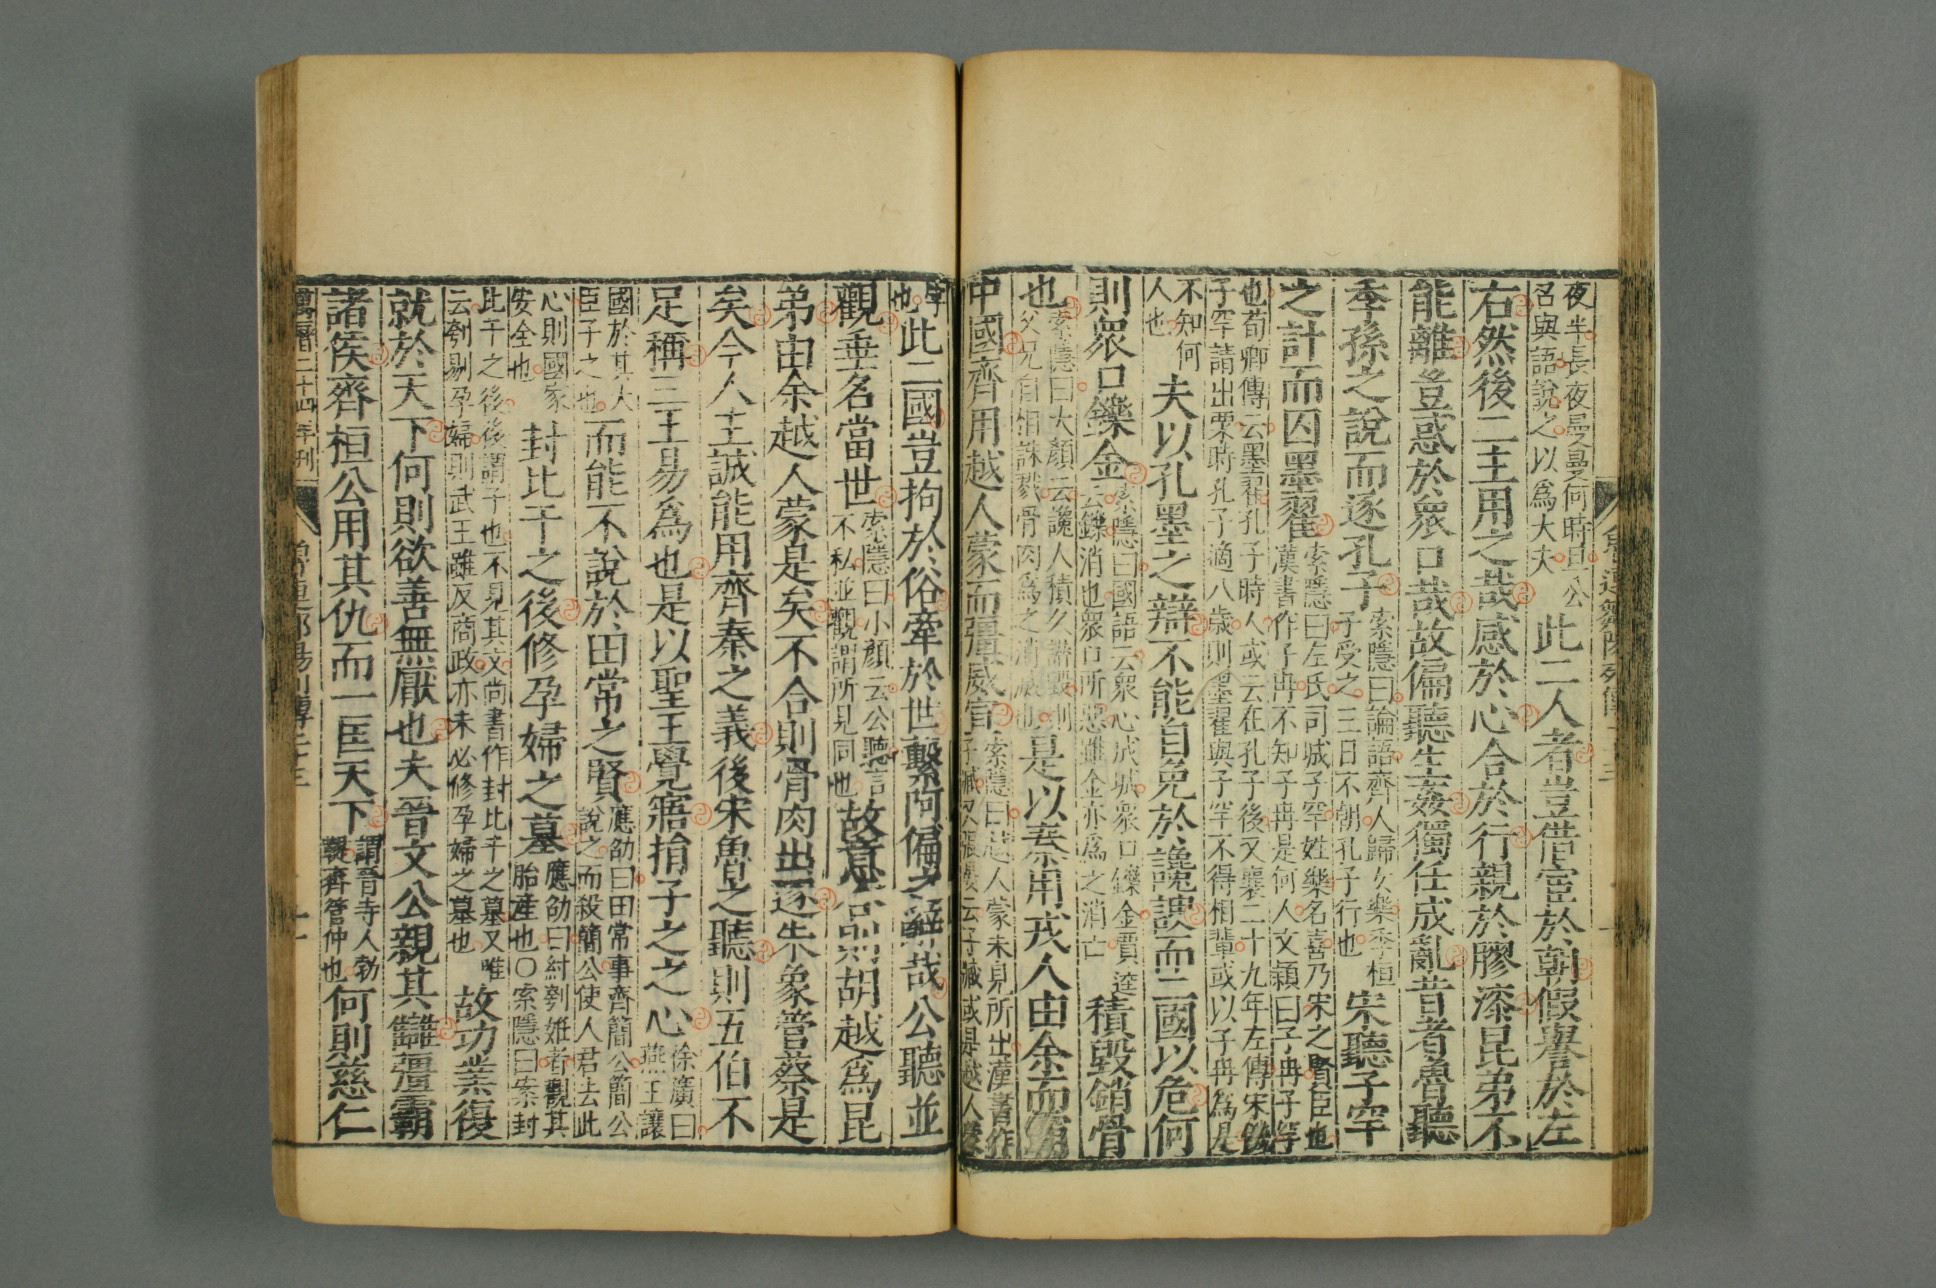 夜半長夜曼曼何時旦公
召與語說之以爲大夫
此二人者豈借宦於朝假譽於左
右然後二主用之哉感於心合於行親於膠漆昆弟不
能離豈惑於衆口哉故偏聽生姦獨任成亂昔者魯聽
季孫之說而逐孔子
索隱曰論語齊人歸女樂季桓
子受之三日不朝孔子行也
宋聽子罕
之計而囚墨翟
索隱曰左氏司城子罕姓樂名喜乃宋之賢臣也
漢書作子冉不知子冉是何人文穎曰子冉子罕
也荀卿傳云墨翟孔子時人或云在孔子後又襄二十九年左傳宋饑
子罕請出粟時孔子適八歲則墨翟與子罕不得相輩或以子冉爲是
不知何
人也
夫以孔墨之辯不能自免於讒諛而二國以危何
則衆口鑠金
索隱曰國語云衆心成城衆口鑠金賈逵
云鑠消也衆口所惡雖金亦爲之消亡
積毀銷骨
也
索隱曰大顏云讒人積久譖毀則
父兄自相誅戮骨肉爲之消滅也
是以秦用戎人由余而霸
中國齊用越人蒙而彊威宣
索隱曰越人蒙未見所出漢書作
子臧又張晏云子臧或是越人蒙
字
也
此二國豈拘於俗牽於世繫阿偏之辭哉公聽並
觀垂名當世
索隱曰小顏云公聽言
不私並觀謂所見同也
故意合則胡越爲昆
弟由余越人蒙是矣不合則骨肉出逐朱象管蔡是
矣今人主誠能用齊秦之義後宋魯之聽則五伯不
足稱三王易爲也是以聖王覺寤捐子之之心
徐廣曰
燕王讓
國於其大
臣子之也
而能不說於田常之賢
應劭曰田常事齊簡公簡公
說之而殺簡公使人君去此
心則國家
安全也
封比干之後修孕婦之墓
應劭曰紂刳妊者觀其
胎產也○索隱曰案封
比干之後後謂子也不見其文尚書作封比干之墓又唯
云刳剔孕婦則武王雖反商政亦未必修孕婦之墓也
故功業復
就於天下何則欲善無厭也夫晉文公親其讎彊霸
諸侯齊桓公用其仇而一匡天下
謂晉寺人勃
鞮齊管仲也
何則慈仁
萬曆二十四年刊
魯連鄒陽列傳二十三